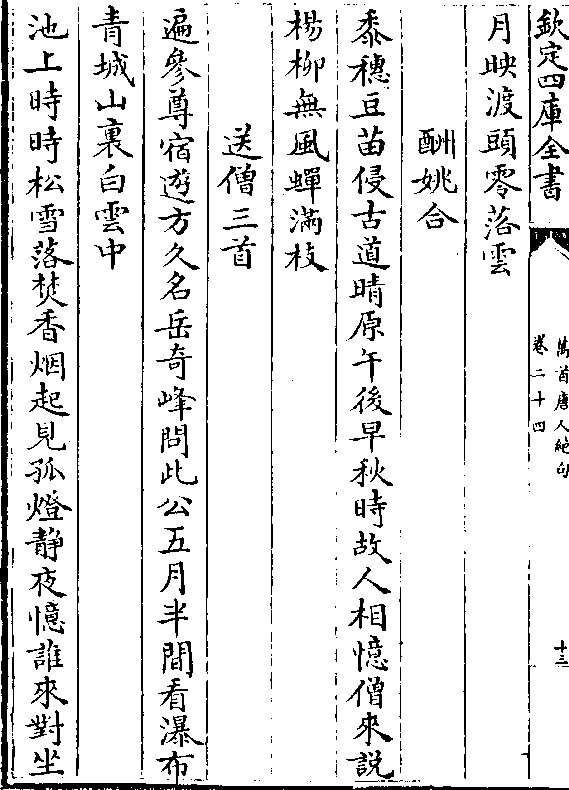 欽定四庫全書
萬首唐人絶句
卷二十四
十三
月映渡頭零落雲
酬姚合
黍穗豆苗侵古道晴原午後早秋時故人相憶僧來說
楊柳無風蟬滿枝
送僧三首
遍參尊宿遊方久名岳奇峰問此公五月半間看瀑布
青城山裏白雲中
池上時時松雪落焚香烟起見孤燈静夜憶誰來對坐